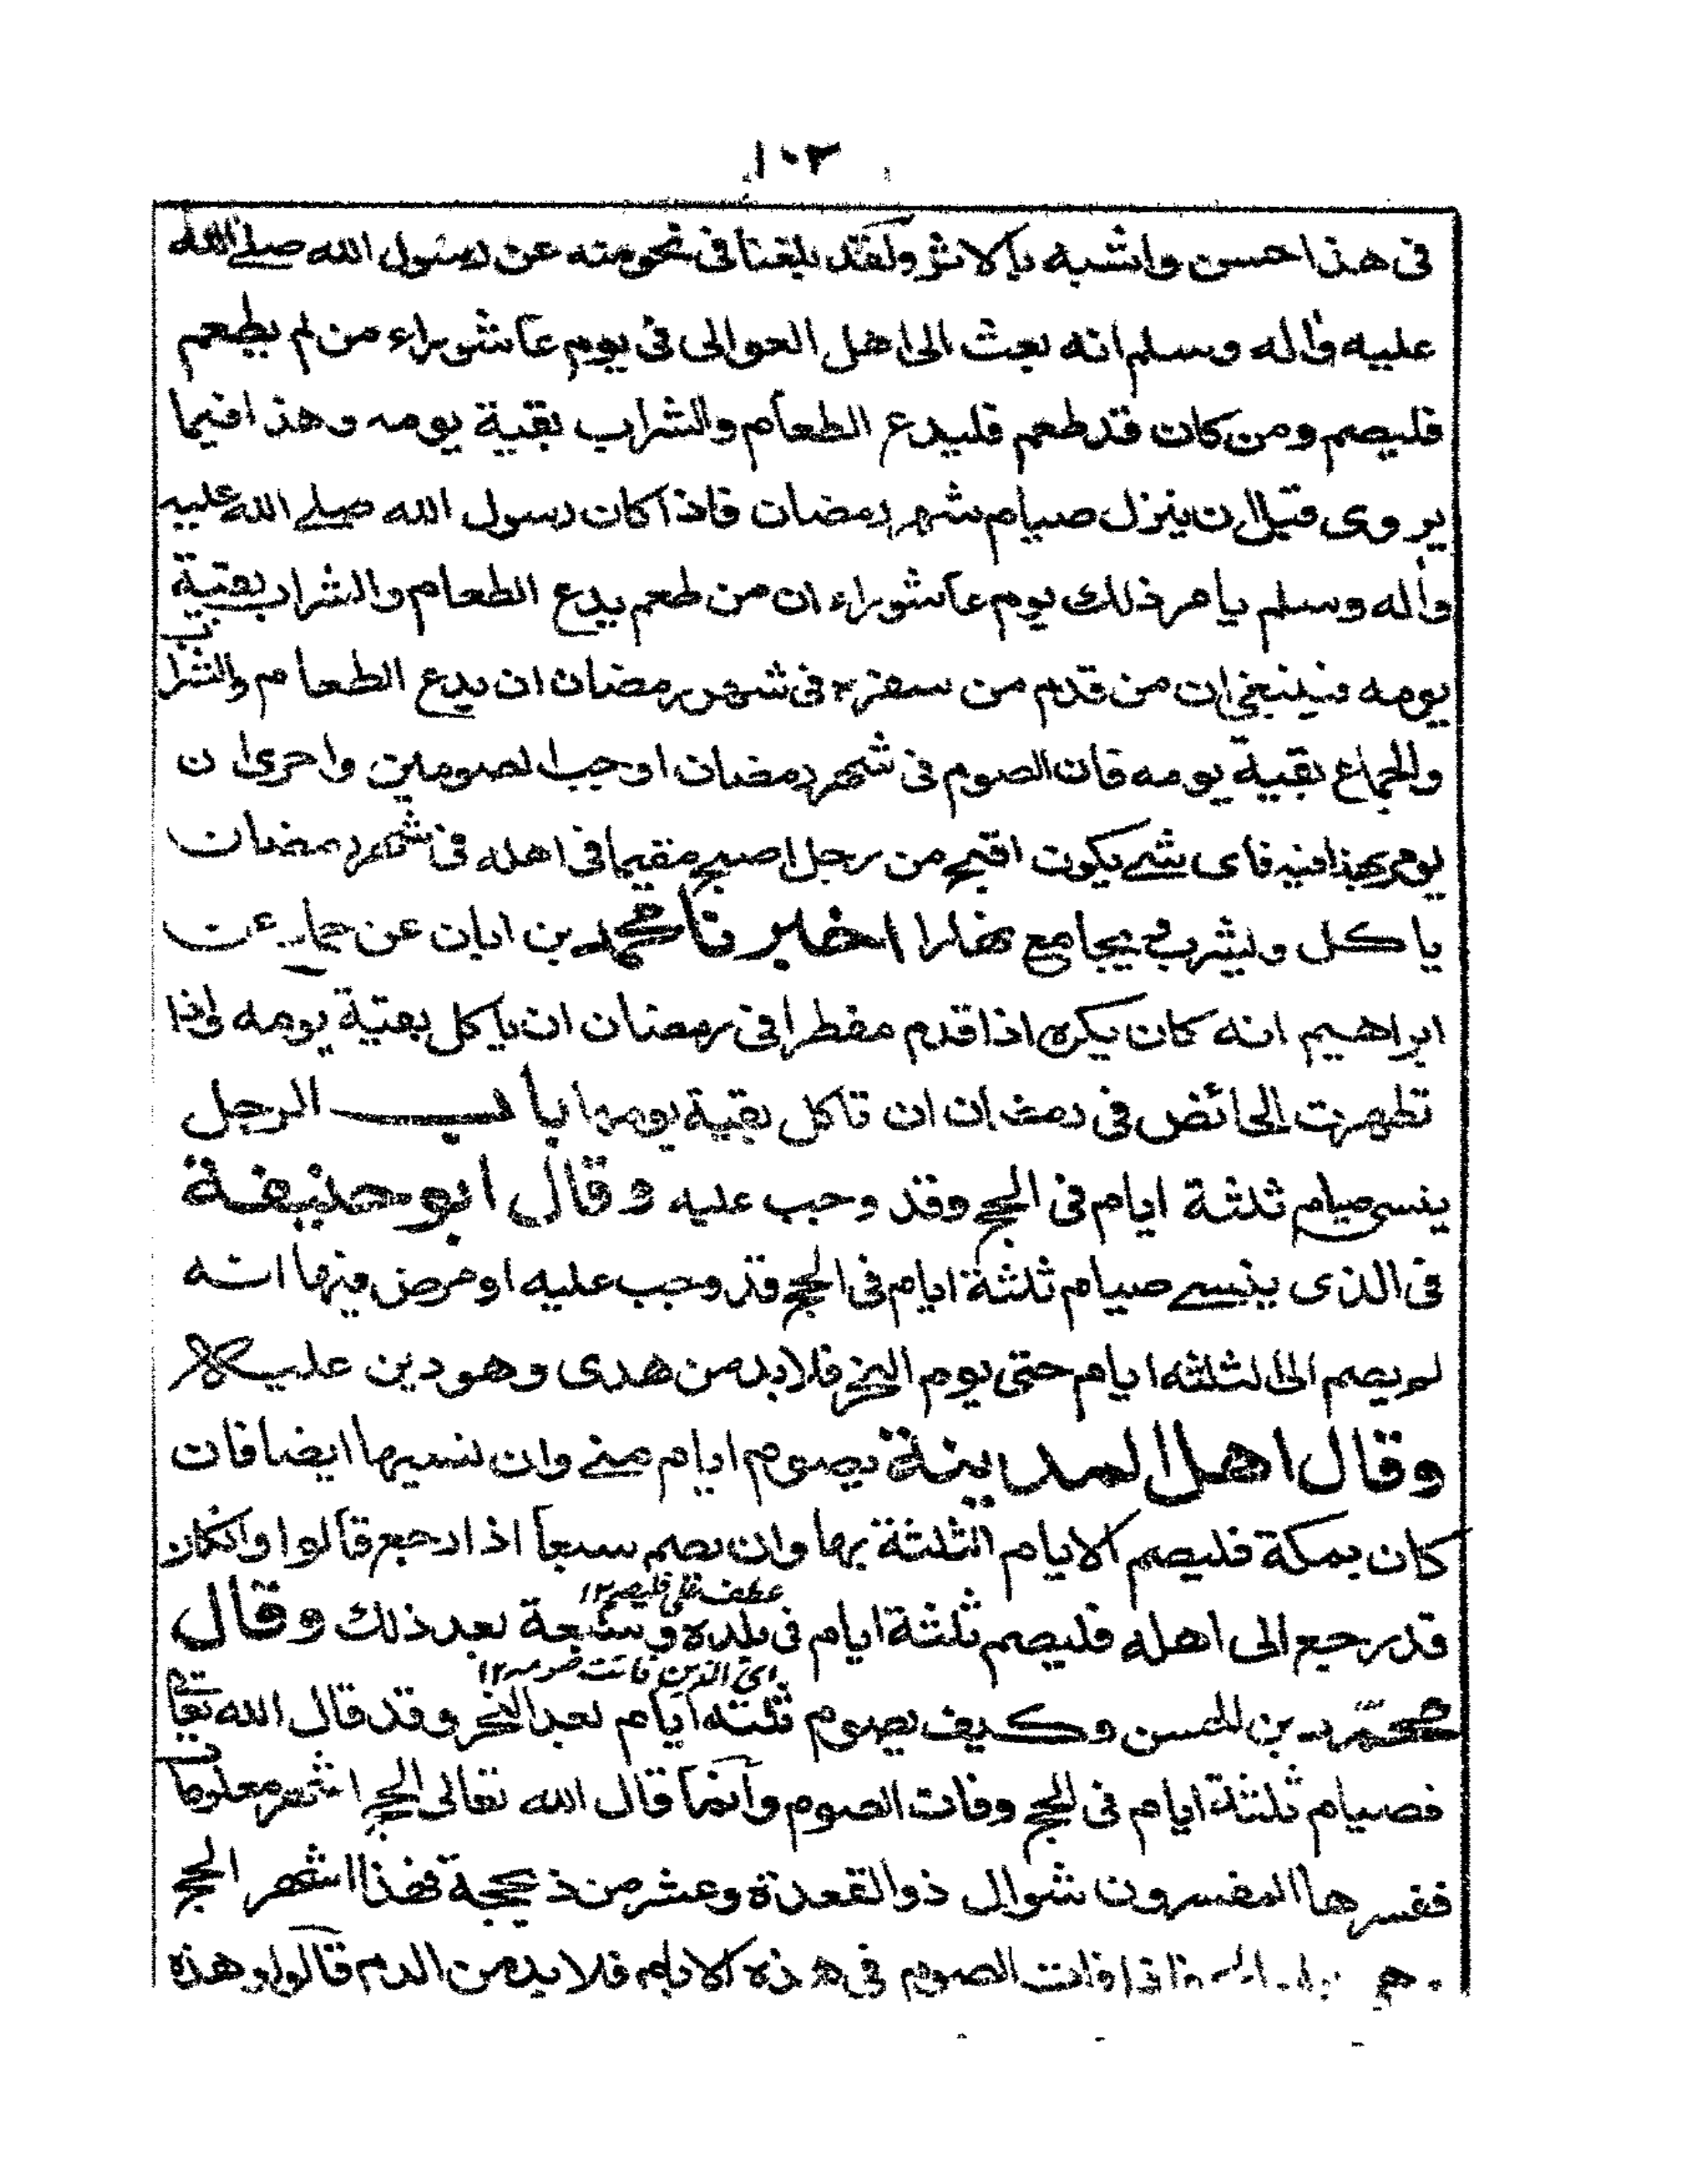 ١٠٢
فى هذا حسن واشبه بالاثر ولقد بلغنا فى نحو منه عن رسول الله صلے الله
عليه واله وسلم انه بعث الى اهل العوالى فى يوم عاشوراء من لم يطعم
فليصم ومن كان قد طعم فليدع الطعام والشراب بقية يومه وهذا فيما
يروى قبل ان ينزل صيام شهر رمضان فاذا كان رسول الله صلے الله عليه
واله وسلم يامر ذلك يوم عاشوراء ان من طعم يدع الطعام والشراب بقية
يومه فينبغى ان من قدم من سفره فى شهر رمضان ان يدع الطعام والشراب
والجماع بقية يومه فان الصوم فى شهر رمضان اوجب الصومين واحرى ان
يومر بهذا فيه فاى شے يكون اقبح من رجل اصبح مقيما فى اهله فى شهر رمضان
ياكل ويشرب ويجامع نهارا اخبرنا محمد بن ابان عن حماد عن
ابراهيم انه كان يكره اذا قدم مفطرا فى رمضان ان ياكل بقية يومه واذا
تطهرت الحائض فى رمضان ان تاكل بقية يومها باب الرجل
ينسى صيام ثلثة ايام فى الحج وقد وجب عليه وقال ابو حنيفة
فى الذى ينسے صيام ثلثة ايام فى الحج قد وجب عليه او مرض فيها انه
لم يصم الثلثه ايام حتى يوم النحر فلا بد من هدى وهو دين عليه
وقال اهل المدينة يصوم ايام منے وان نسيها ايضا فان
كان بمكة فليصم الايام الثلثة بها وان يصم سبعا اذا رجع قالوا وانكان
عطف على فليصم ١٢
قد رجع الى اهله فليصم ثلثة ايام فى بلده وسبعة بعد ذلك وقال
اى الذين فاتت صومه ١٢
محمد بن الحسن وكيف يصوم ثلثه ايام بعد النحر وقد قال الله تعالى
فصيام ثلثة ايام فى الحج وفات الصوم وانما قال الله تعالى الحج اشهر معلومات
ففسرها المفسرون شوال ذوالقعدة وعشر من ذيحجة فهذا اشهر الحج
فاذا فات الصوم فى هذه الايام فلا بد من الدم قالوا وهذه